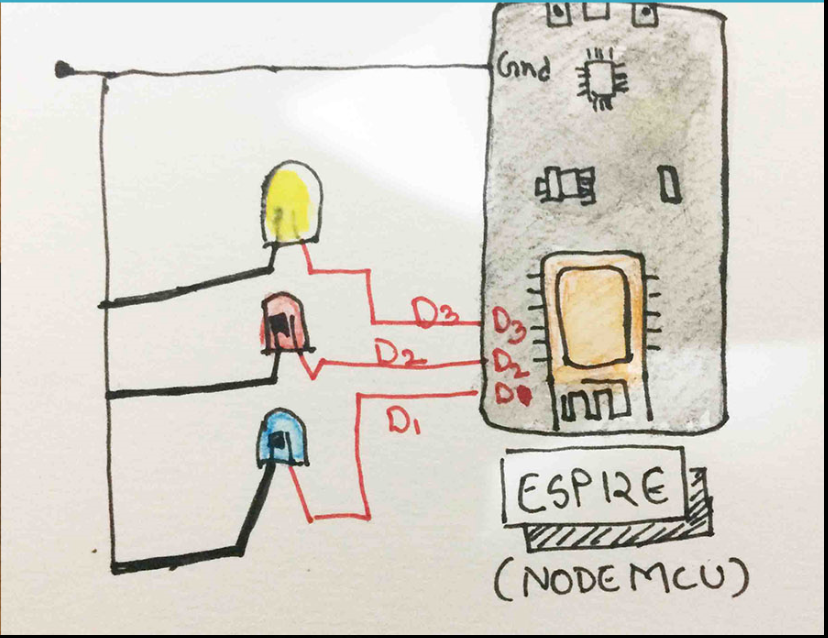 Gnd
D3 D3
D2 D2
D1
ESP12E
(NODEMCU)